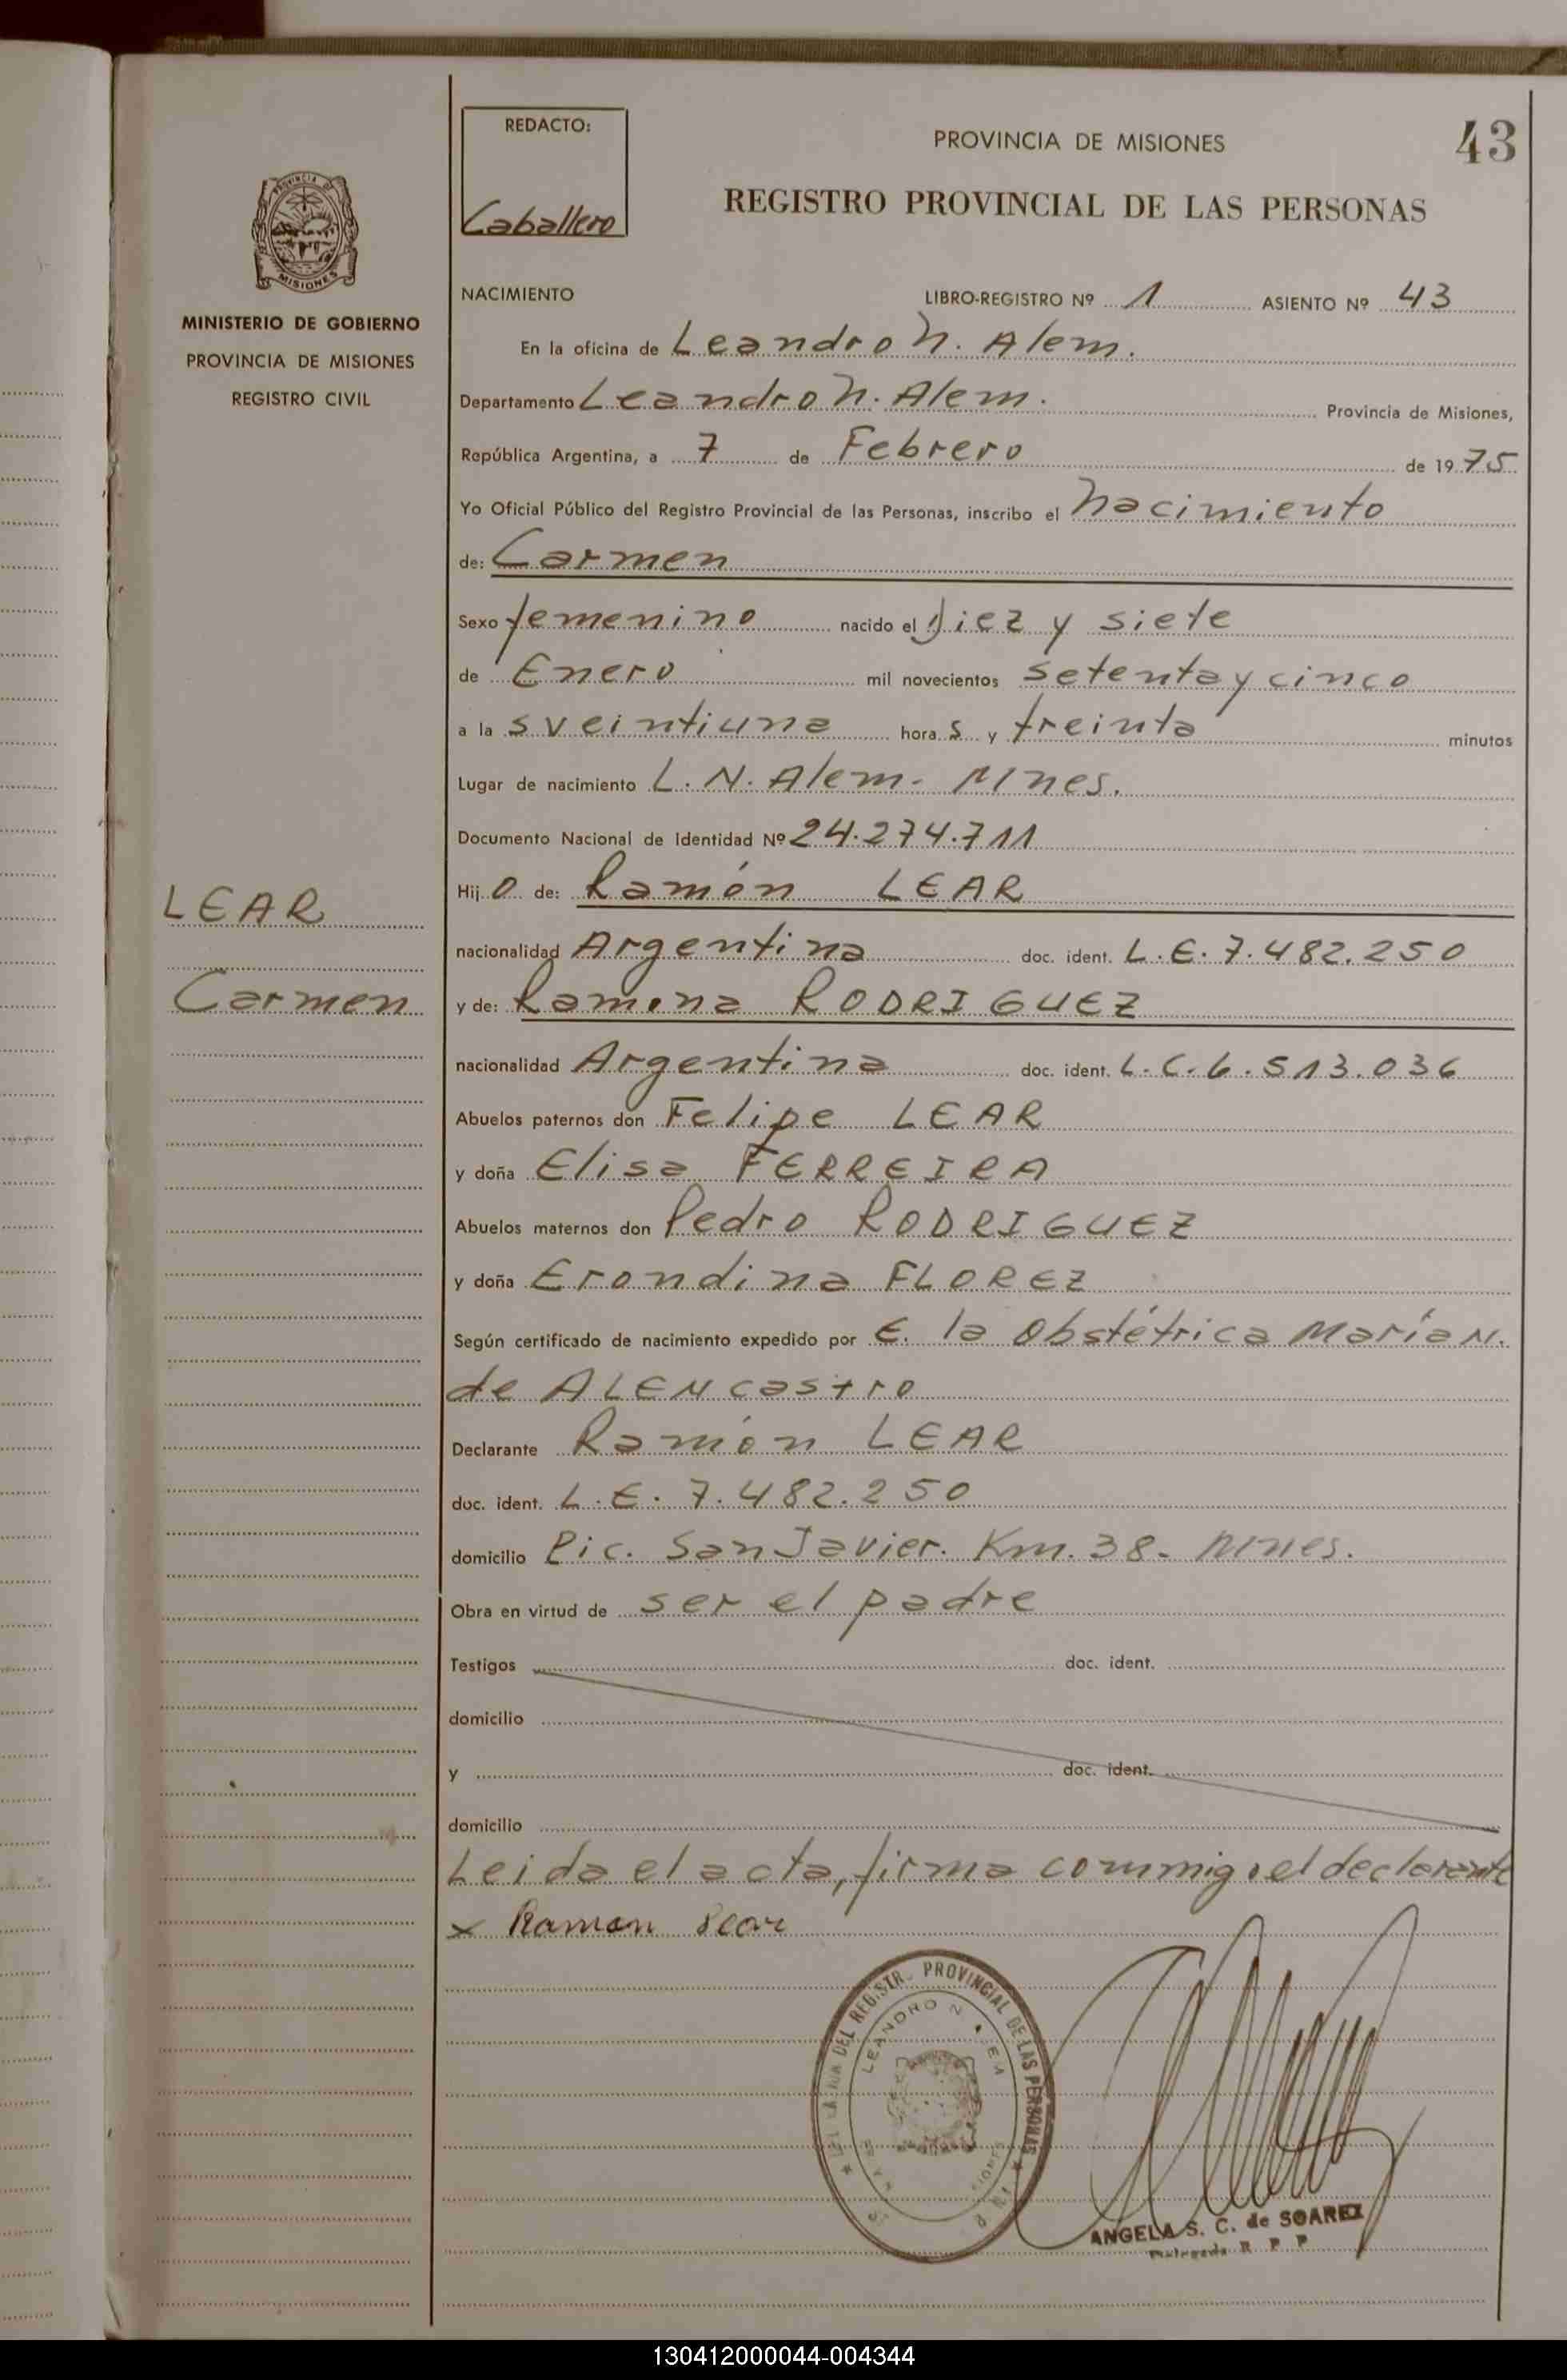 REDACTO:
Caballero
PROVINCIA DE MISIONES
43
REGISTRO PROVINCIAL DE LAS PERSONAS
MISIONES
MINISTERIO DE GOBIERNO
PROVINCIA DE MISIONES
REGISTRO CIVIL
NACIMIENTO LIBRO-REGISTRO Nº 1 ASIENTO Nº 43
En la oficina de Leandro N. Alem.
Departamento Leandro N. Alem. Provincia de Misiones,
República Argentina, a 7 de Febrero de 1975
Yo Oficial Público del Registro Provincial de las Personas, inscribo el nacimiento
de: Carmen
Sexo femenino nacido el Diez y siete
de Enero mil novecientos setenta y cinco
a la s veintiuna hora s y treinta minutos
Lugar de nacimiento L. N. Alem - Mnes.
Documento Nacional de Identidad Nº 24.274.711
Hij o de: Ramón LEAR
LEAR
nacionalidad Argentina doc. ident. L.E. 7.482.250
Carmen
y de: Ramona RODRIGUEZ
nacionalidad Argentina doc. ident. L.C. 6.513.036
Abuelos paternos don Felipe LEAR
y doña Elisa FERREIRA
Abuelos maternos don Pedro RODRIGUEZ
y doña Erondina FLOREZ
Según certificado de nacimiento expedido por E. la Obstétrica María N.
de ALENcastro
Declarante Ramón LEAR
doc. ident. L.E. 7.482.250
domicilio Pic. San Javier. Km. 38 - Mnes.
Obra en virtud de ser el padre
Testigos doc. ident.
domicilio
y doc. ident.
domicilio
Leida el acta, firma conmigo el declarante
x Ramon Lear
DEL REGISTR PROVINCIAL DE LAS PERSONAS
LEANDRO N
ANGELA S. C. de SOAREZ
R P P
130412000044-004344